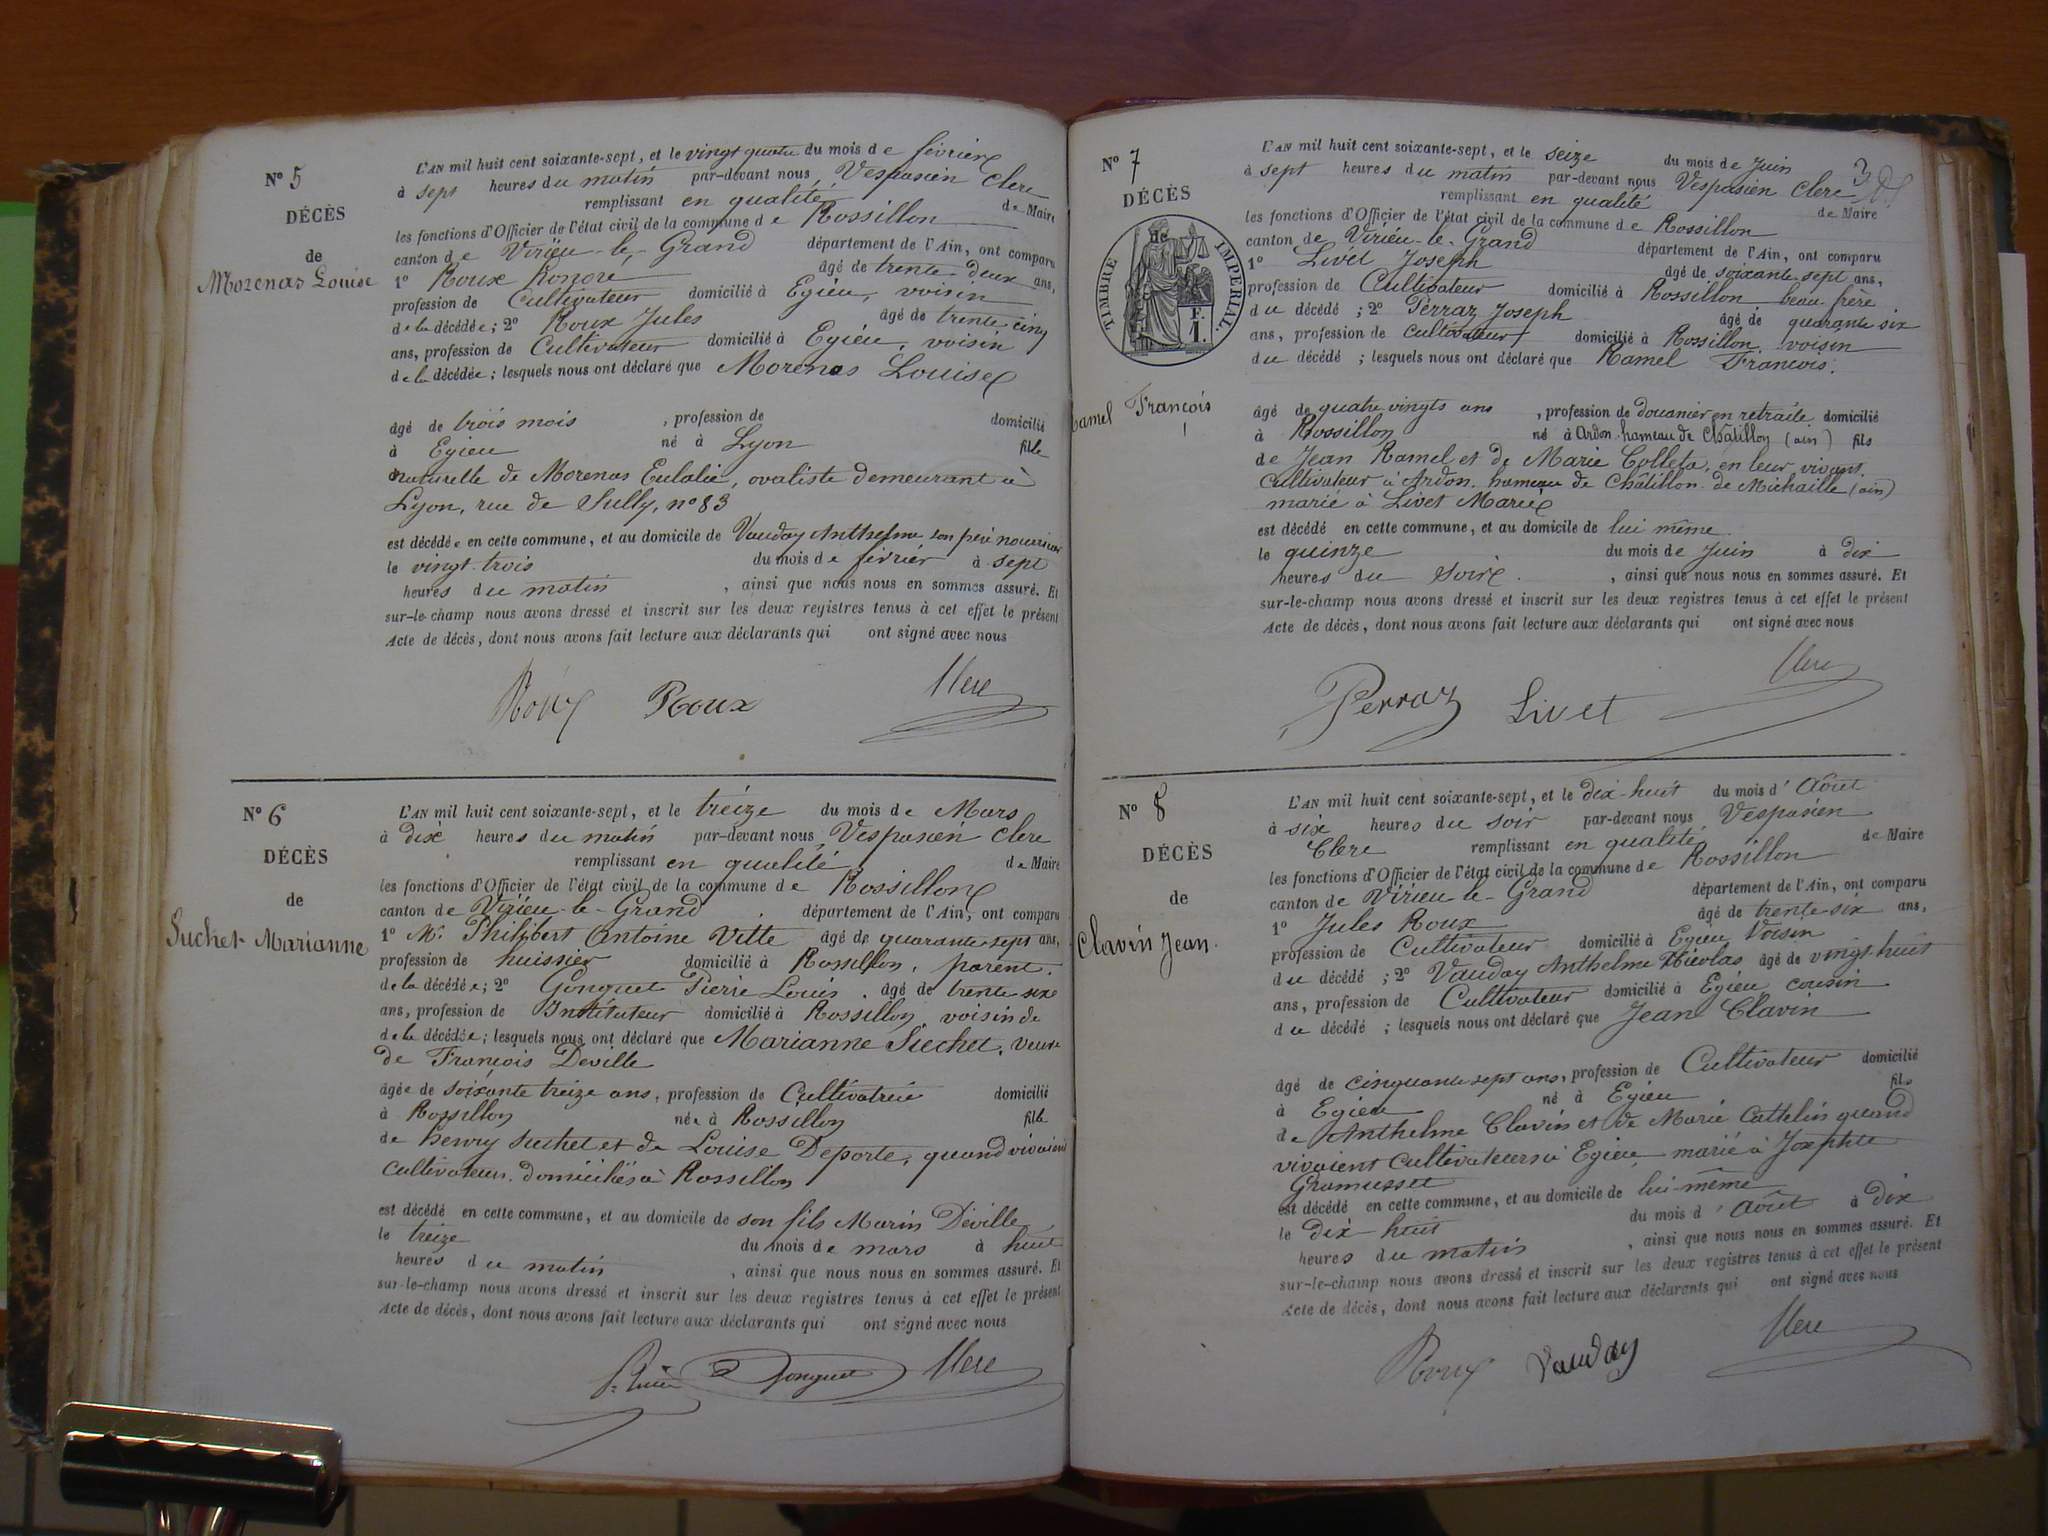 N° 5
DÉCÈS
de
Morenas Louise
L'AN mil huit cent soixante-sept, et le vingt quatre du mois de février
à sept heures du matin par-devant nous Vespasien Clerc
remplissant en qualité de Maire
les fonctions d'Officier de l'état civil de la commune de Rossillon
canton de Virieu-le-Grand département de l'Ain, ont comparu
1° Roux Honoré âgé de trente deux ans,
profession de Cultivateur domicilié à Egieu, voisin
de la décédée; 2° Roux Jules âgé de trente cinq
ans, profession de Cultivateur domicilié à Egieu, voisin
de la décédée; lesquels nous ont déclaré que Morenas Louise
âgé de trois mois , profession de domicilié
à Egieu né à Lyon fille
naturelle de Morenas Eulalie, ovaliste demeurant à
Lyon, rue de Sully, n° 83
est décédée en cette commune, et au domicile de Vauday Anthelme son père nourricier
le vingt trois du mois de février à sept
heures du matin , ainsi que nous nous en sommes assuré. Et
sur-le-champ nous avons dressé et inscrit sur les deux registres tenus à cet effet le présent
Acte de décès, dont nous avons fait lecture aux déclarants qui ont signé avec nous
Roux Roux Clerc
N° 6
DÉCÈS
de
Suchet Marianne
L'AN mil huit cent soixante-sept, et le treize du mois de Mars
à dix heures du matin par-devant nous Vespasien Clerc
remplissant en qualité de Maire
les fonctions d'Officier de l'état civil de la commune de Rossillon
canton de Virieu-le-Grand département de l'Ain, ont comparu
1° Mr Philibert Antoine Vitte âgé de quarante sept ans,
profession de huissier domicilié à Rossillon, parent
de la décédée; 2° Gonguet Pierre Louis âgé de trente six
ans, profession de Instituteur domicilié à Rossillon voisin de
de la décédée; lesquels nous ont déclaré que Marianne Suchet, veuve
de François Deville
âgée de soixante treize ans, profession de Cultivatrice domicilié
à Rossillon née à Rossillon fille
de henry Suchet et de Louise Deporte, quand vivaient
cultivateurs domiciliés à Rossillon
est décédé en cette commune, et au domicile de son fils Marin Déville
le treize du mois de mars à huit
heures du matin , ainsi que nous nous en sommes assuré. Et
sur-le-champ nous avons dressé et inscrit sur les deux registres tenus à cet effet le présent
Acte de décès, dont nous avons fait lecture aux déclarants qui ont signé avec nous
Gonguet Clerc
N° 7
DÉCÈS
de
TIMBRE IMPERIAL.
F.
1.
Ramel François
3
L'AN mil huit cent soixante-sept, et le seize du mois de Juin
à sept heures du matin par-devant nous Vespasien Clerc
remplissant en qualité de Maire
les fonctions d'Officier de l'état civil de la commune de Rossillon
canton de Virieu-le-Grand département de l'Ain, ont comparu
1° Livet Joseph âgé de soixante sept ans,
profession de Cultivateur domicilié à Rossillon beau frère
du décédé ; 2° Perraz Joseph âgé de quarante six
ans, profession de Cultivateur domicilié à Rossillon voisin
du décédé ; lesquels nous ont déclaré que Ramel François.
âgé de quatre vingts ans , profession de douanier en retraite domicilié
à Rossillon né à Ardon hameau de Châtillon (ain) fils
de Jean Ramel et de Marie Colleta, en leur vivant
Cultivateur à Ardon hameau de Châtillon de Michaille (ain)
marié à Livet Marie
est décédé en cette commune, et au domicile de lui même
le quinze du mois de Juin à dix
heures du soir , ainsi que nous nous en sommes assuré. Et
sur-le-champ nous avons dressé et inscrit sur les deux registres tenus à cet effet le présent
Acte de décès, dont nous avons fait lecture aux déclarants qui ont signé avec nous
Perraz Livet Clerc
N° 8
DÉCÈS
de
Clavin Jean.
L'AN mil huit cent soixante-sept, et le dix-huit du mois d'Août
à six heures du soir par-devant nous Vespasien
Clerc remplissant en qualité de Maire
les fonctions d'Officier de l'état civil de la commune de Rossillon
canton de Virieu-le-Grand département de l'Ain, ont comparu
1° Jules Roux âgé de trente six ans,
profession de Cultivateur domicilié à Egieu Voisin
du décédé ; 2° Vauday Anthelme Nicolas âgé de vingt-huit
ans, profession de Cultivateur domicilié à Egieu cousin
du décédé ; lesquels nous ont déclaré que Jean Clavin
âgé de cinquante sept ans, profession de Cultivateur domicilié
à Egieu né à Egieu fils
de Anthelme Clavin et de Marie Cattelin quand
vivaient Cultivateurs à Egieu marié à Josephte
Gramusset
est décédé en cette commune, et au domicile de lui-même
le dix huit du mois d'août à dix
heures du matin , ainsi que nous nous en sommes assuré. Et
sur-le-champ nous avons dressé et inscrit sur les deux registres tenus à cet effet le présent
Acte de décès, dont nous avons fait lecture aux déclarants qui ont signé avec nous
Roux Vauday Clerc